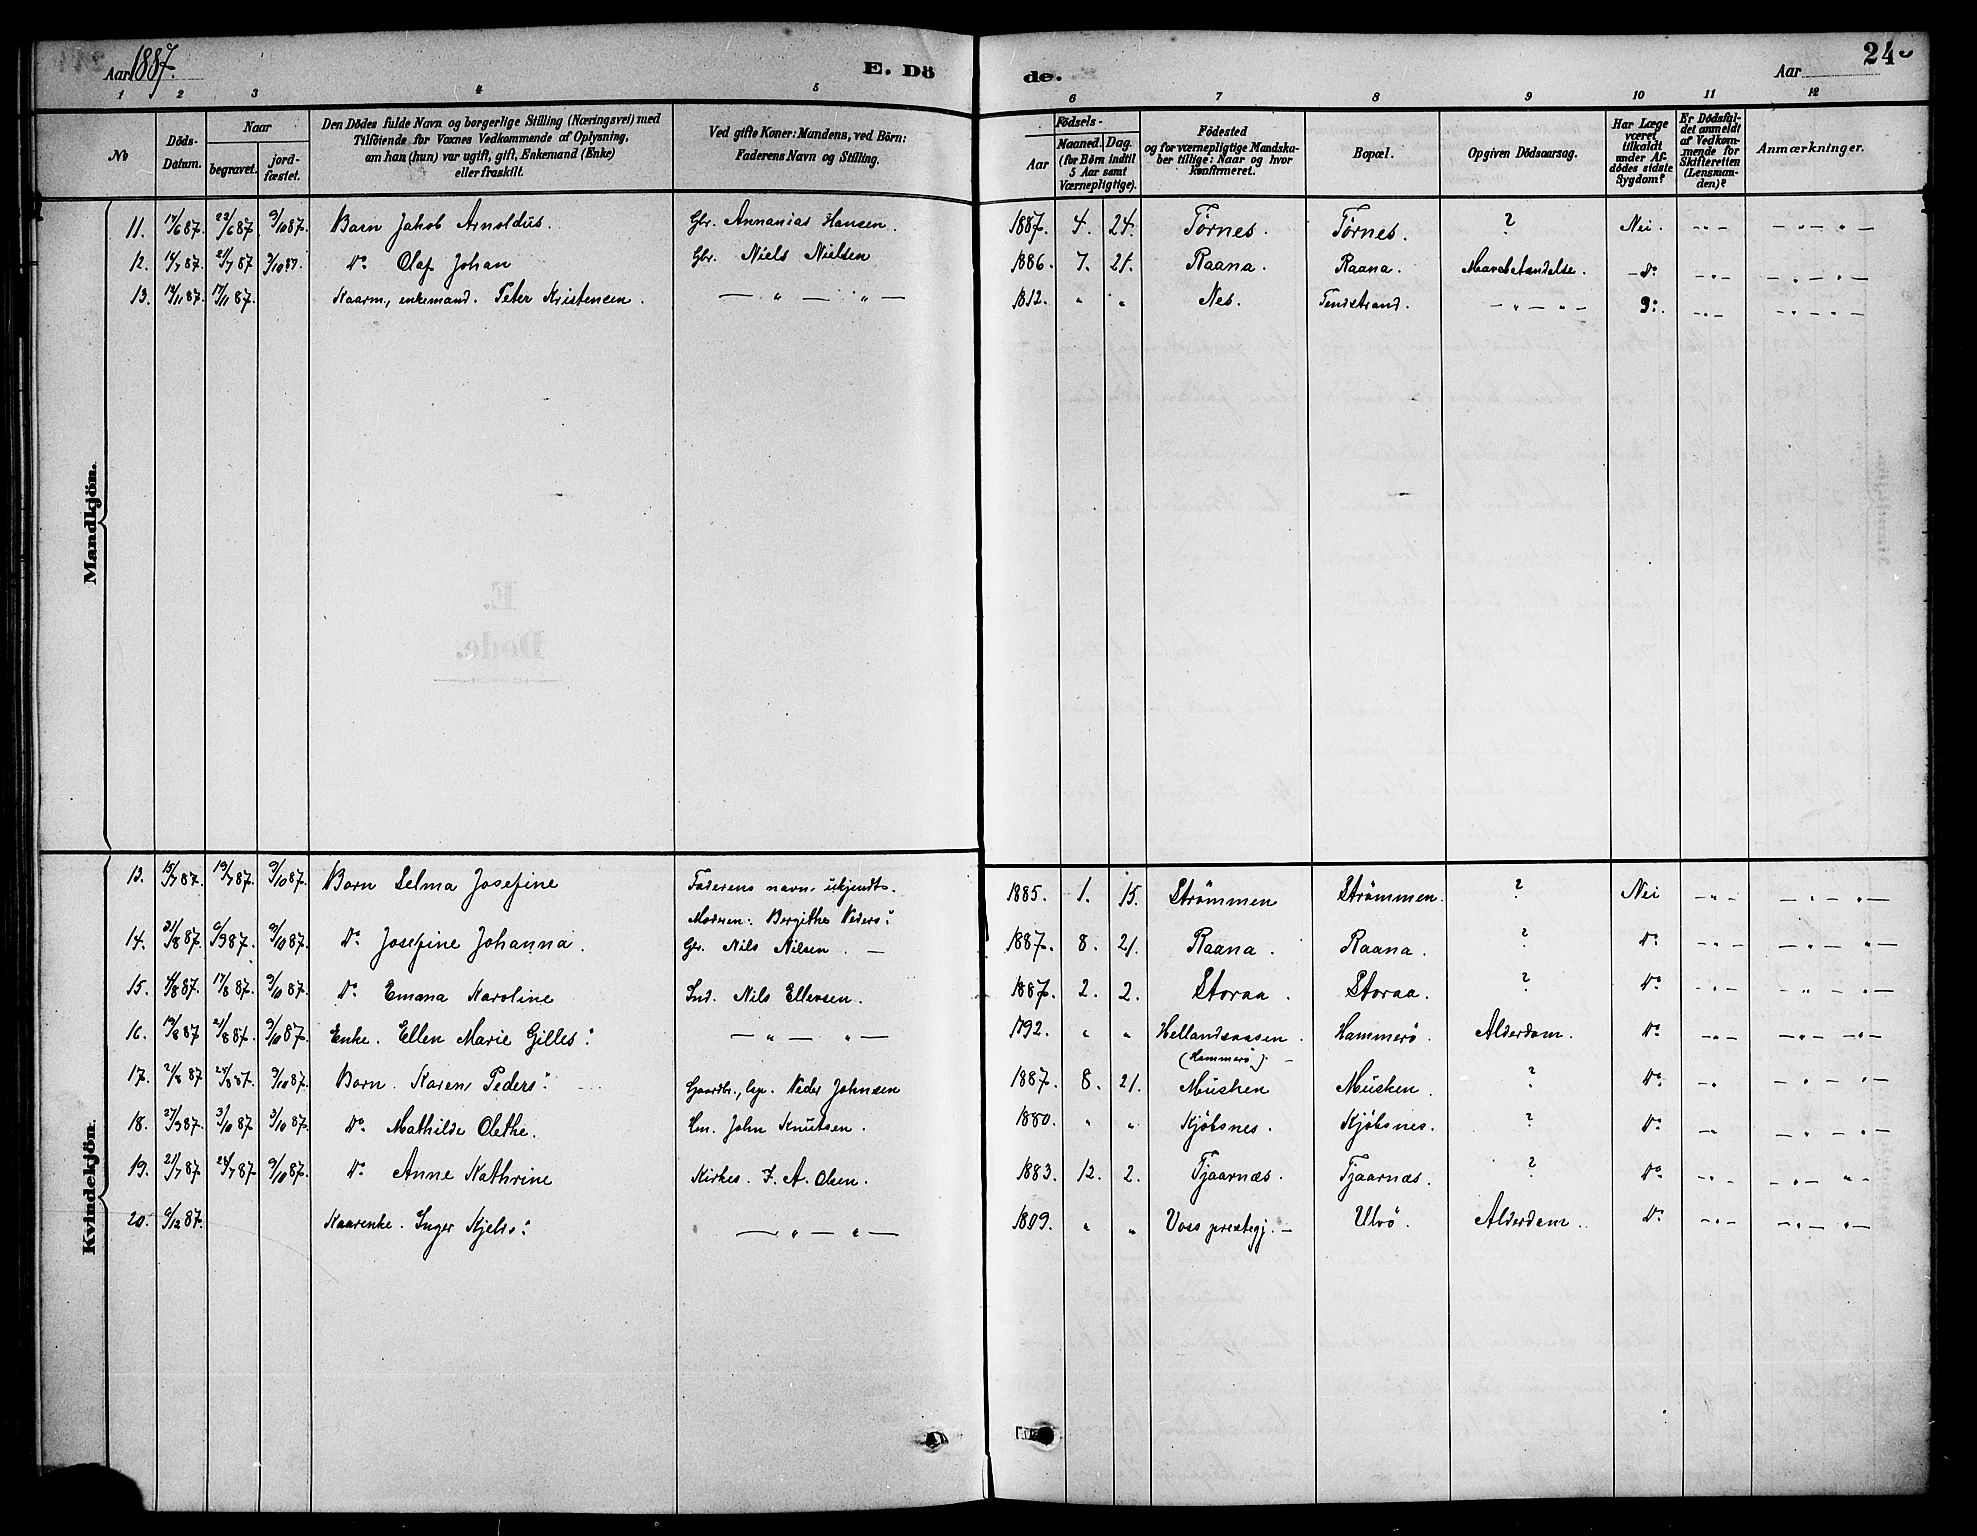 Aar 1887. E. Dö de. Aar 24
1 2 3 4 5 6 7 8 9 10 11 12
No
Döds-Datum.
Naar begravet. jord-fæstet.
Den Dödes fulde Navn og borgerlige Stilling (Næringsvei) med
Tilföiende for Voxnes Vedkommende af Oplysning,
om han (hun) var ugift, gift, Enkemand (Enke)
eller fraskilt.
Ved gifte Koner: Mandens, ved Börn:
Faderens Navn og Stilling.
Födsels-
Aar Maaned. Dag.
(for Börn indtil
5 Aar samt
Værnepligtige).
Födested
og for værnepligtige Mandska-
ber tillige: Naar og hvor
konfirmeret.
Bopæl.
Opgiven Dödsaarsag.
Har Læge
været
tilkaldt
under Af-
dödes sidste
Sygdom?
Er Dödsfal-
det anmeldt
af Vedkom-
mende for
Skifteretten
(Lensman-
den)?
Anmærkninger.
Mandkjön.
11. 17/6 87. 22/6 87 9/10 87. Barn Jakob Arnoldus. Gbr. Annanias Hansen. 1887. 4. 24. Tørnes. Tørnes. ? Nei. - " - — " — " —
12. 14/7 87. 21/7 87 9/10 87. Do Olaf Johan Gbr. Niels Nielsen 1886. 7. 21. Raana. Raana. Mavebetændelse. - Do - " - — " — " —
13. 13/11 87. 17/11 87. Kaarm, enkemand. Peter Kristensen. — " — " — 1812. " " Nes. Tendstrand. — " — " — - " - — " — " —
Kvindekjön.
13. 15/7 87. 19/7 87. 9/10 87. Barn Selma Josefine Faderens navn ukjendt. 1885. 1. 15. Strömmen Strömmen. ? Nei - " - — " — " —
Moderen: Bergithe Peders:
14. 31/8 87. 6/9 87. 9/10 87. Do Josefine Johanna. Gbr. Nils Nilsen. — 1887. 8. 21. Raana. Raana. ? Do - " - — " — " —
15. 4/8 87. 17/8 87. 9/10 87. Do Emma Karoline Ind. Nils Ellevsen. 1887. 2. 2. Storaa. Storaa. ? Do - " - — " — " —
16. 19/8 87 21/8 87. 9/10 87. Enke. Ellen Marie Gilles: — " — " — 1792. " " Hellandsaasen. Hammerö. Alderdom. Do - " - — " — " —
(Hammerö). —
17. 21/8 87 28/8 87. 9/10 87. Barn. Karen Peders: Gaardbr., Peder Johnsen 1887. 8. 21. Müsken Müsken. ? Do - " — " — " —
18. 27/9 87. 3/10 87 3/10 87. Do Mathilde Olethe. Hm. John Knutsen. 1880. " " Kjöbsnes. Kjöbsnes. ? Do - " — " — " —
19. 21/7 87 28/7 87 9/10 87. Do Anne Kathrine Kirkes. J. A. Olsen. 1883. 12. 2. Tjaarnæs. Tjaarnæs. ? Do - " - — " — " —
20. 6/12 87. Kaarenke. Inger Kjels: — " — " — 1809. " " Voss prestegj. — Ulvö. Alderdom. Do - " - — " — " —